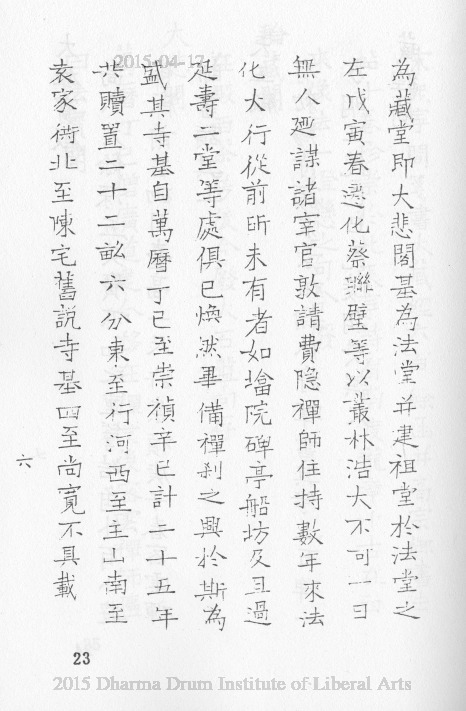 為藏堂即大悲閣基為法堂并建祖堂於法堂之
左戊寅春遷化蔡聯璧等以叢林浩大不可一日
無人廼謀諸宰官敦請費隐禪師住持數年來法
化大行從前所未有者如墖院碑亭船坊及旦過
延壽二堂等處俱已煥然畢備禪刹之興於斯為
盛其寺基自萬曆丁巳至崇禎辛巳計二十五年
共贖置二十二畝六分東至行河西至主山南至
袁家衖北至陳宅舊說寺基四至尚寬不具載
六
23
2015-04-17
2015 Dharma Drum Institute of Liberal Arts